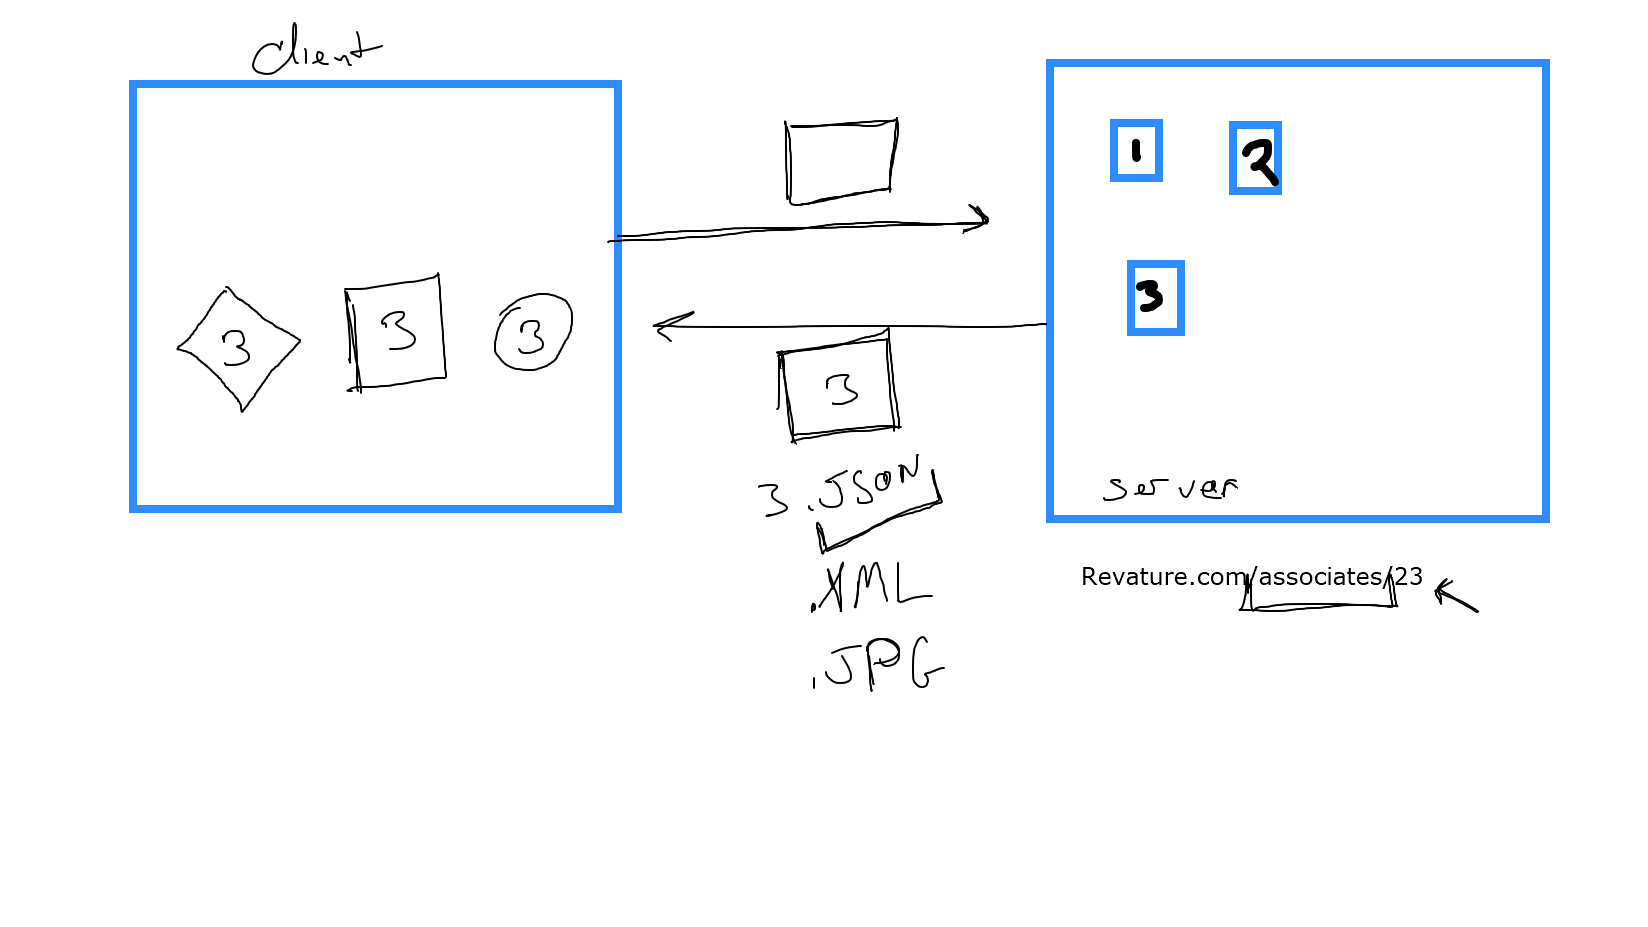 client
1
2
3
3
3
3
3
3 .JSON
.XML
.JPG
server
Revature.com/associates/23